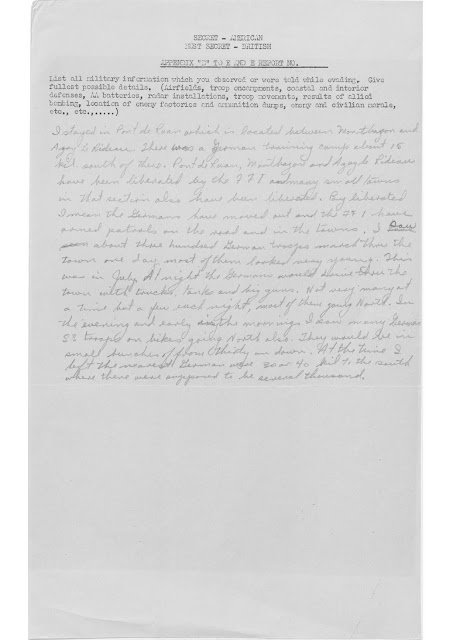 SECRET - AMERICAN
MOST SECRET - BRITISH
APPENDIX "D" TO E AND E REPORT NO.
List all military information which you observed or were told while evading. Give
fullest possible details. (Airfields, troop encampments, coastal and interior
defenses, AA batteries, radar installations, troop movements, results of allied
bombing, location of enemy factories and ammunition dumps, enemy and civilian morale,
etc., etc.,.....)
I stayed in Pont de Ruan which is located between Montbagon and
Azay le Rideau. There was a German training camp about 15
kil. south of there. Pont de Ruan, Montbagon and Azay le Rideau
have been liberated by the FFI and many small towns
in that section also have been liberated. By liberated
I mean the Germans have moved out and the FFI have
armed patrols on the road and in the towns. I saw
about three hundred German troops march thru the
town one day most of them looked very young. This
was in July. At night the Germans would drive thru the
town with trucks, tanks and big guns. Not very many at
a time but a few each night, most of them going North. In
the evening and early in the mornings I saw many German
SS troops on bikes going North also. They would be in
small bunches of from thirty on down. At the time I
left the nearest German were 30 or 40 kil to the south
where there were supposed to be several thousand.